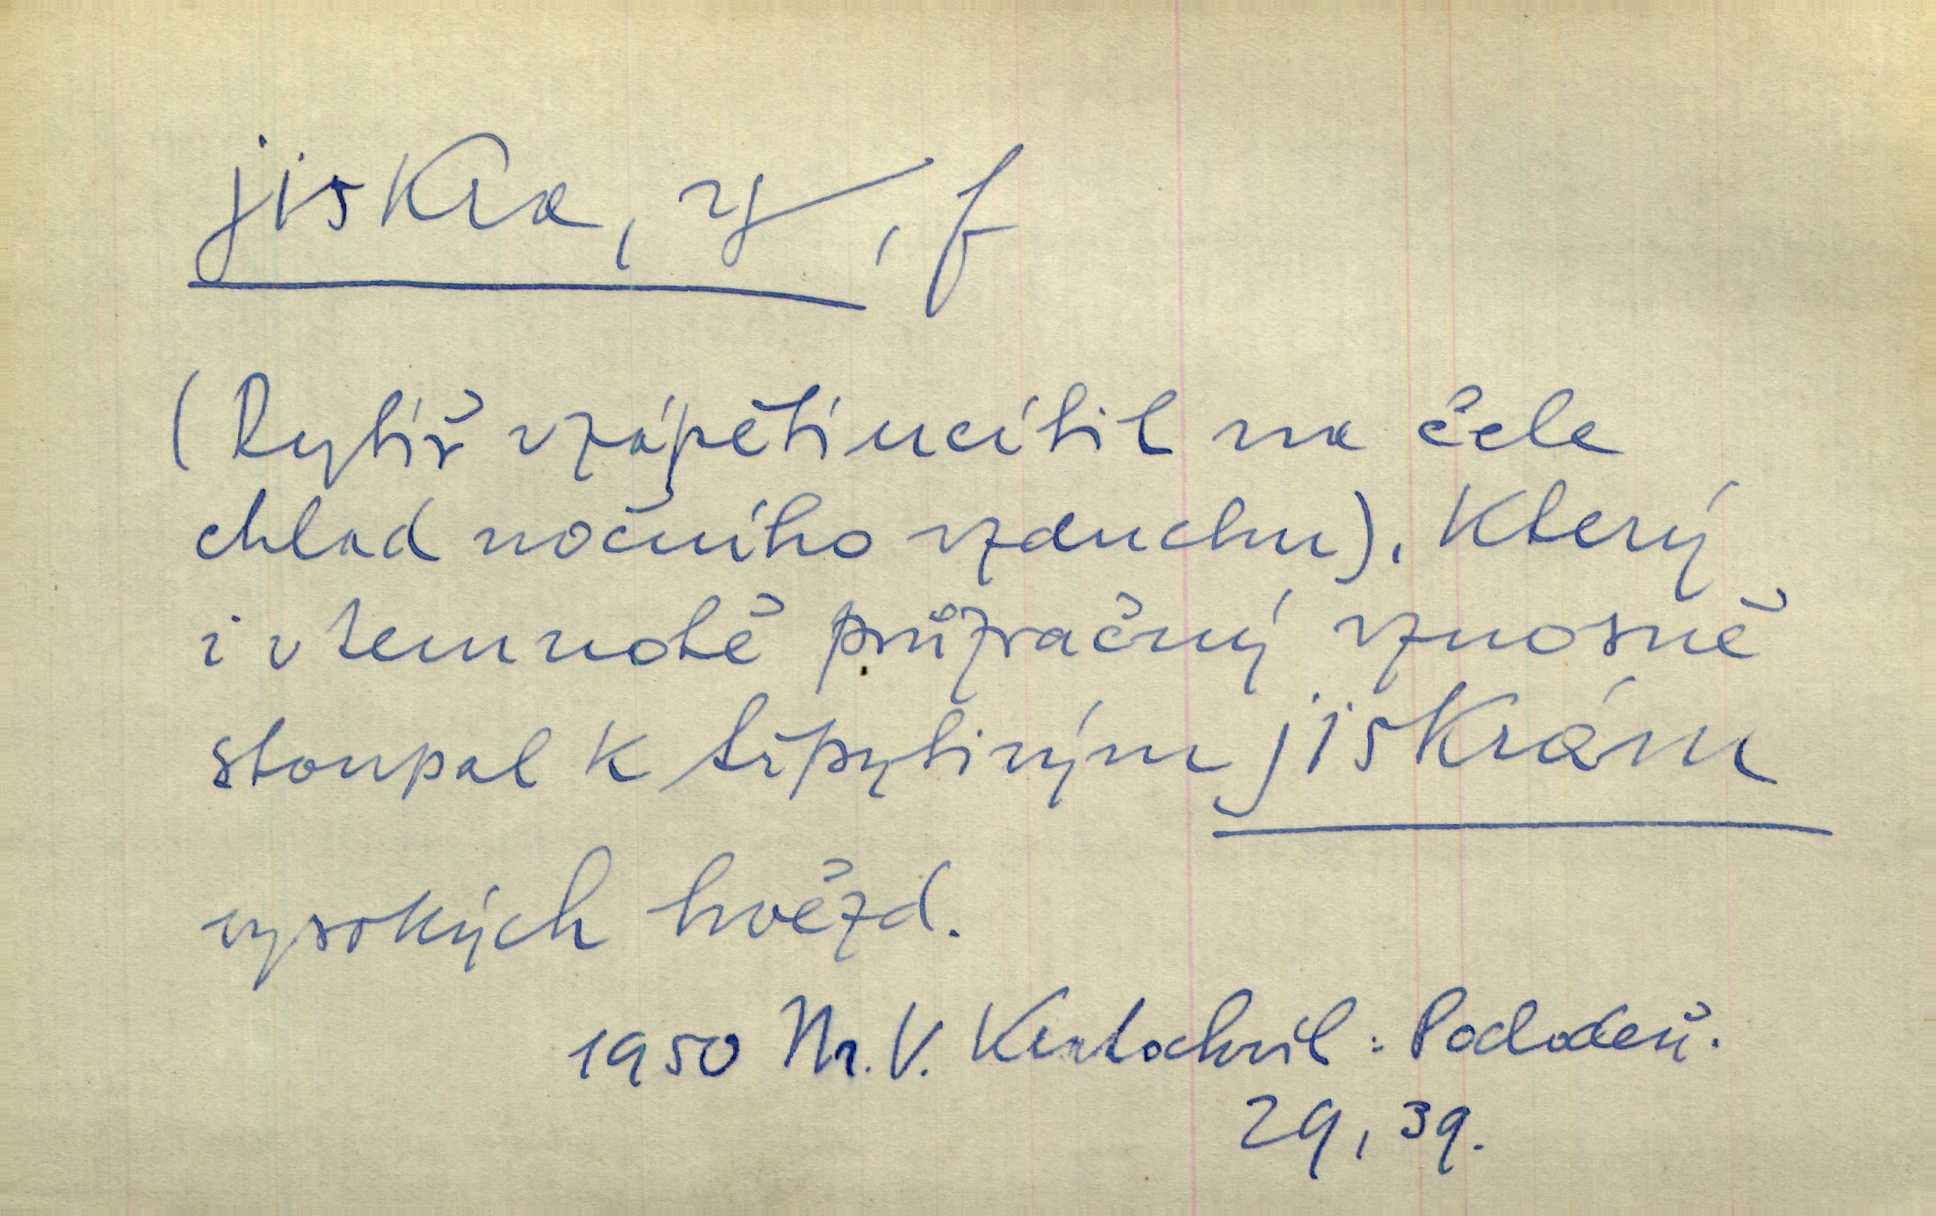 jiskra, y, f
(Rytíř vzápětí ucítil na čele
chlad nočního vzduchu). Který
i v temnotě průzračný vznosně
stoupal k třpytivým jiskrám
vysokých hvězd.
1950 M. V. Kratochvíl:
29, 39.